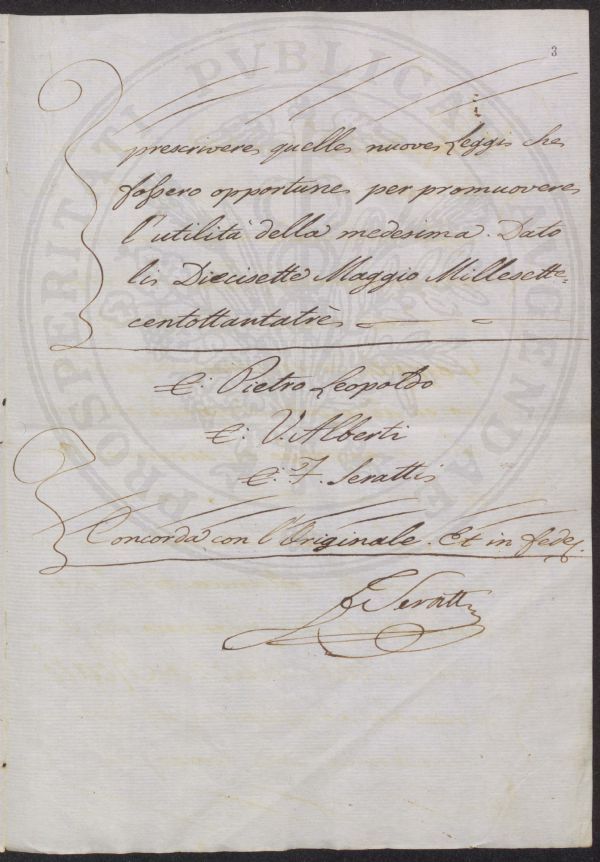 3
prescrivere quelle nuove Leggi che
fossero opportune per promuovere
l'utilità della medesima. Dato
li Diecisette Maggio Millesette=
centottantatrè
E: Pietro Leopoldo
E: V. Alberti
E: F. Seratti
Concorda con l'Originale. Et in fede.
F Seratti
PROSPERITATI PVBLICAE AVGENDAE